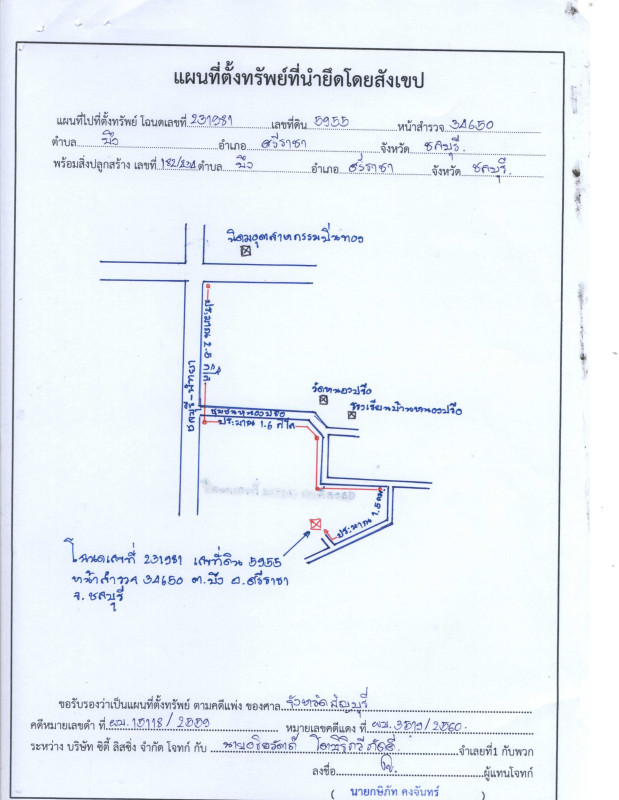 แผนที่ตั้งทรัพย์ที่นำยึดโดยสังเขป
แผนที่ไปที่ตั้งทรัพย์ โฉนดเลขที่ 231981 เลขที่ดิน 5955 หน้าสำรวจ 34650
ตำบล บึง อำเภอ ศรีราชา จังหวัด ชลบุรี.
พร้อมสิ่งปลูกสร้าง เลขที่ 182/ ตำบล บึง อำเภอ ศรีราชา จังหวัด ชลบุรี.
นิคมอุตสาหกรรมปิ่นทอง
ประมาณ 2.8 กิโล
ชลบุรี-พัทยา
วัดหนองปรือ
โรงเรียนบ้านหนองปรือ
ชุมชนหนองปรือ
ประมาณ 1.6 กิโล
ประมาณ 1.5 กม.
โฉนดเลขที่ 231981 เลขที่ดิน 5955
หน้าสำรวจ 34650 ต.บึง อ.ศรีราชา
จ.ชลบุรี
ขอรับรองว่าเป็นแผนที่ตั้งทรัพย์ ตามคดีแพ่ง ของศาล จังหวัดธัญบุรี
คดีหมายเลขดำ ที่ ผบ.15118/2559 หมายเลขคดีแดง ที่ ผบ.3519/2560.
ระหว่าง บริษัท ซิตี้ ลิสซิ่ง จำกัด โจทก์ กับ นาย จำเลยที่1 กับพวก
ลงชื่อ ผู้แทนโจทก์
( นายกษิภัท คงจันทร์ )